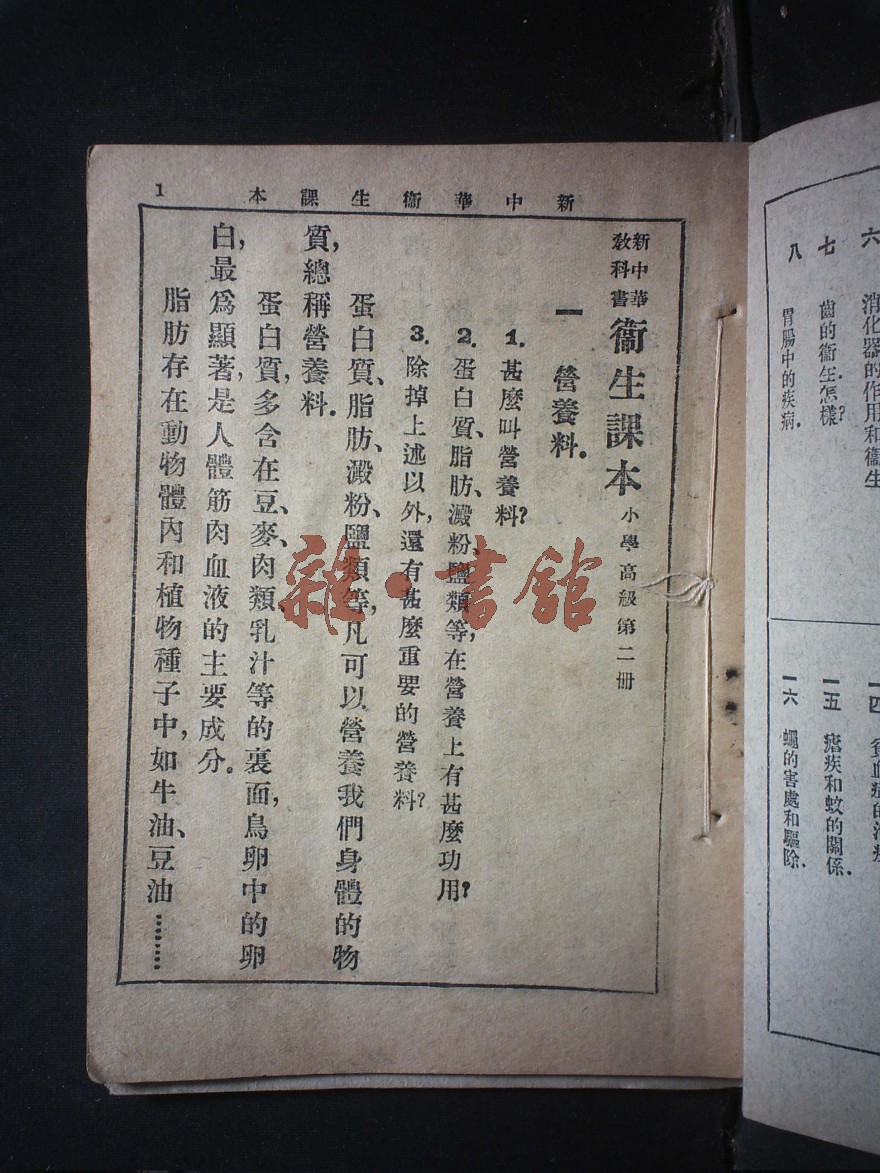 新中華衞生課本
1
新中華
教科書
衞生課本 小學高級第二冊
一 營養料.
1. 甚麼叫營養料?
2. 蛋白質、脂肪、澱粉、鹽類等,在營養上有甚麼功用?
3. 除掉上述以外,還有甚麼重要的營養料?
蛋白質、脂肪、澱粉、鹽類等,凡可以營養我們身體的物
質,總稱營養料.
蛋白質,多含在豆、麥、肉類、乳汁等的裏面,鳥卵中的卵
白,最爲顯著,是人體筋肉血液的主要成分。
脂肪存在動物體內和植物種子中,如牛油、豆油………
六 消化器的作用和衞生
七 齒的衞生怎樣?
八 胃腸中的疾病.
一四 貧血病的治療
一五 瘧疾和蚊的關係.
一六 蠅的害處和驅除.
雜·書館